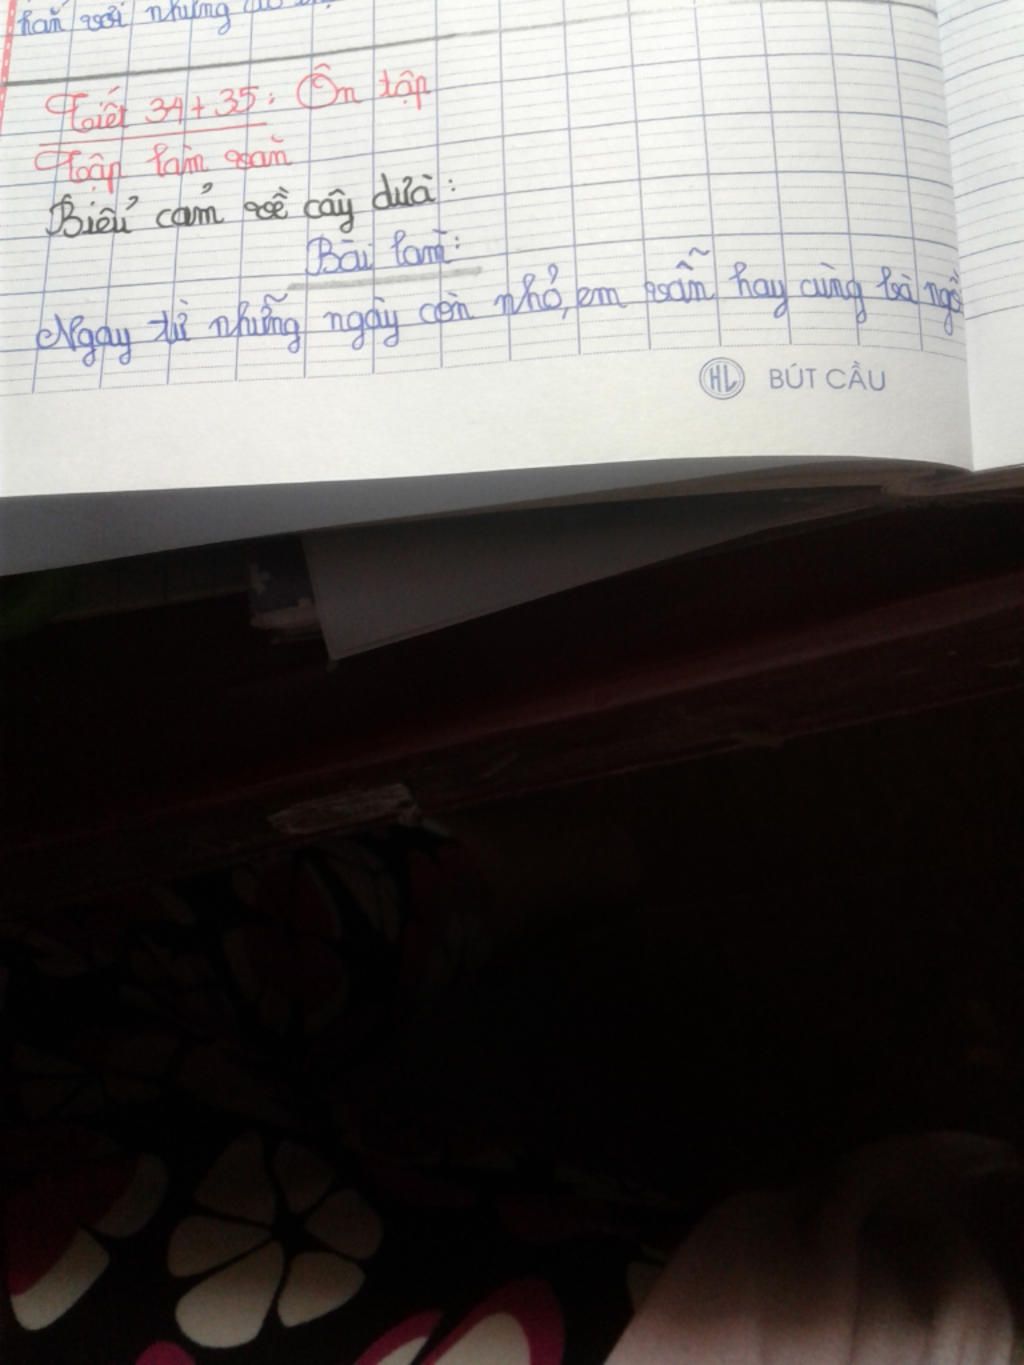 với những
Tiết 34+35: Ôn tập
Tập làm văn
Biểu cảm về cây dừa:
Bài làm:
Ngay từ những ngày còn nhỏ, em vẫn hay cùng bà ngồ
HL BÚT CẦU